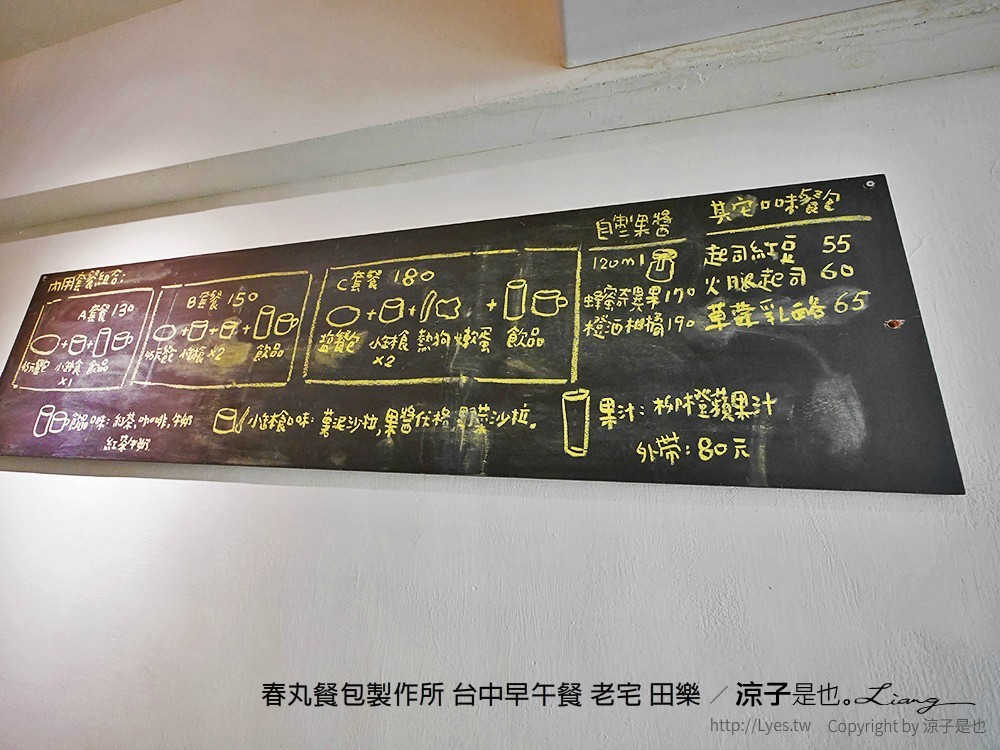 內用套餐組合:
A套餐 130
45元餐包 小鉢食 飲品
x1
B套餐 150
45元餐包 小鉢食 x2 飲品
C套餐 180
鹽餐包 小鉢食 熱狗 嫩蛋 飲品
x2
自製果醬
120ml
蜂蜜奇異果 170
橙酒柑橘 190
其它口味餐包
起司紅豆 55
火腿起司 60
蔓莓乳酪 65
飲品口味: 紅茶, 咖啡, 牛奶
紅茶牛奶
小鉢食口味: 薯泥沙拉, 果醬優格, 野菜沙拉。
果汁: 柳橙蘋果汁
外帶: 80元
春丸餐包製作所 台中早午餐 老宅 田樂 ╱ 涼子是也。Liang
http://Lyes.tw Copyright by 涼子是也